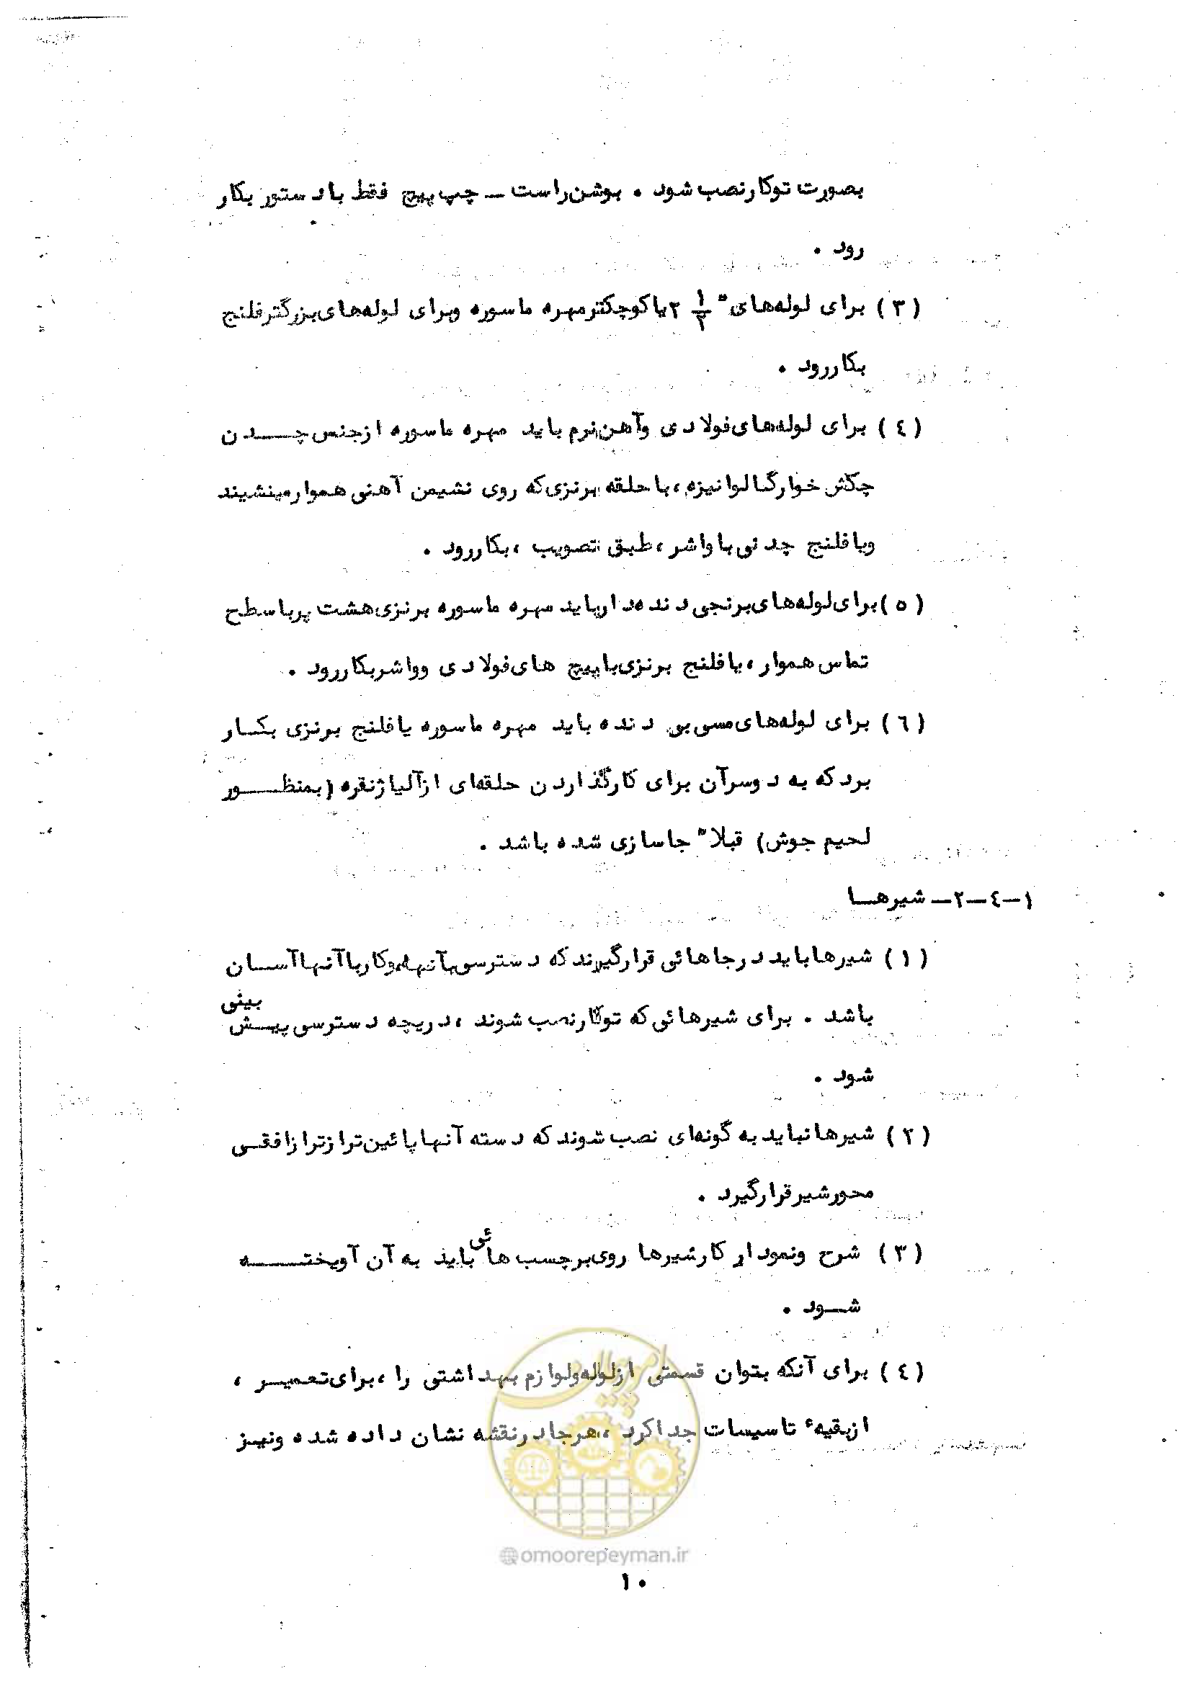 بصورت توکار نصب شود . بوشن راست – چپ پیچ فقط با دستور بکار
رود .
(٣) برای لوله‌های "٢ ١/٢ یا کوچکتر مهره ماسوره وبرای لوله‌های بزرگتر فلنج
بکار رود .
(٤) برای لوله‌های فولادی وآهن نرم باید مهره ماسوره از جنس چــدن
چکش خوار گالوانیزه ، با حلقه برنزی که روی نشیمن آهنی هموار مینشیند
ویا فلنج چدنی با واشر ، طبق تصویب ، بکار رود .
(٥) برای لوله‌های برنجی دنده‌دار باید مهره ماسوره برنزی هشت پر با سطح
تماس هموار ، یا فلنج برنزی با پیچ های فولادی وواشر بکار رود .
(٦) برای لوله‌های مسی بی دنده باید مهره ماسوره یا فلنج برنزی بکـار
برد که به دوسر آن برای کارگذاردن حلقه‌ای از آلیاژ نقره (بمنظــور
لحیم جوش) قبلا" جاسازی شده باشد .
١–٤–٢– شیرهــا
(١) شیرها باید در جاهائی قرار گیرند که دسترسی بآنها وکار با آنها آســان
باشد . برای شیرهائی که توکار نصب شوند ، دریچه دسترسی پیــش بینی
شود .
(٢) شیرها نباید به گونه‌ای نصب شوند که دسته آنها پائین تر از تراز افقــی
محور شیر قرار گیرد .
(٣) شرح ونمودار کار شیرها روی برچسب هائی باید به آن آویختــه
شــود .
(٤) برای آنکه بتوان قسمتی از لوله ولوازم بهداشتی را ، برای تعمیــر ،
از بقیهٔ تاسیسات جدا کرد ، هر جا در نقشه نشان داده شده ونیــز
امور پیمان
@omoorepeyman.ir
١٠